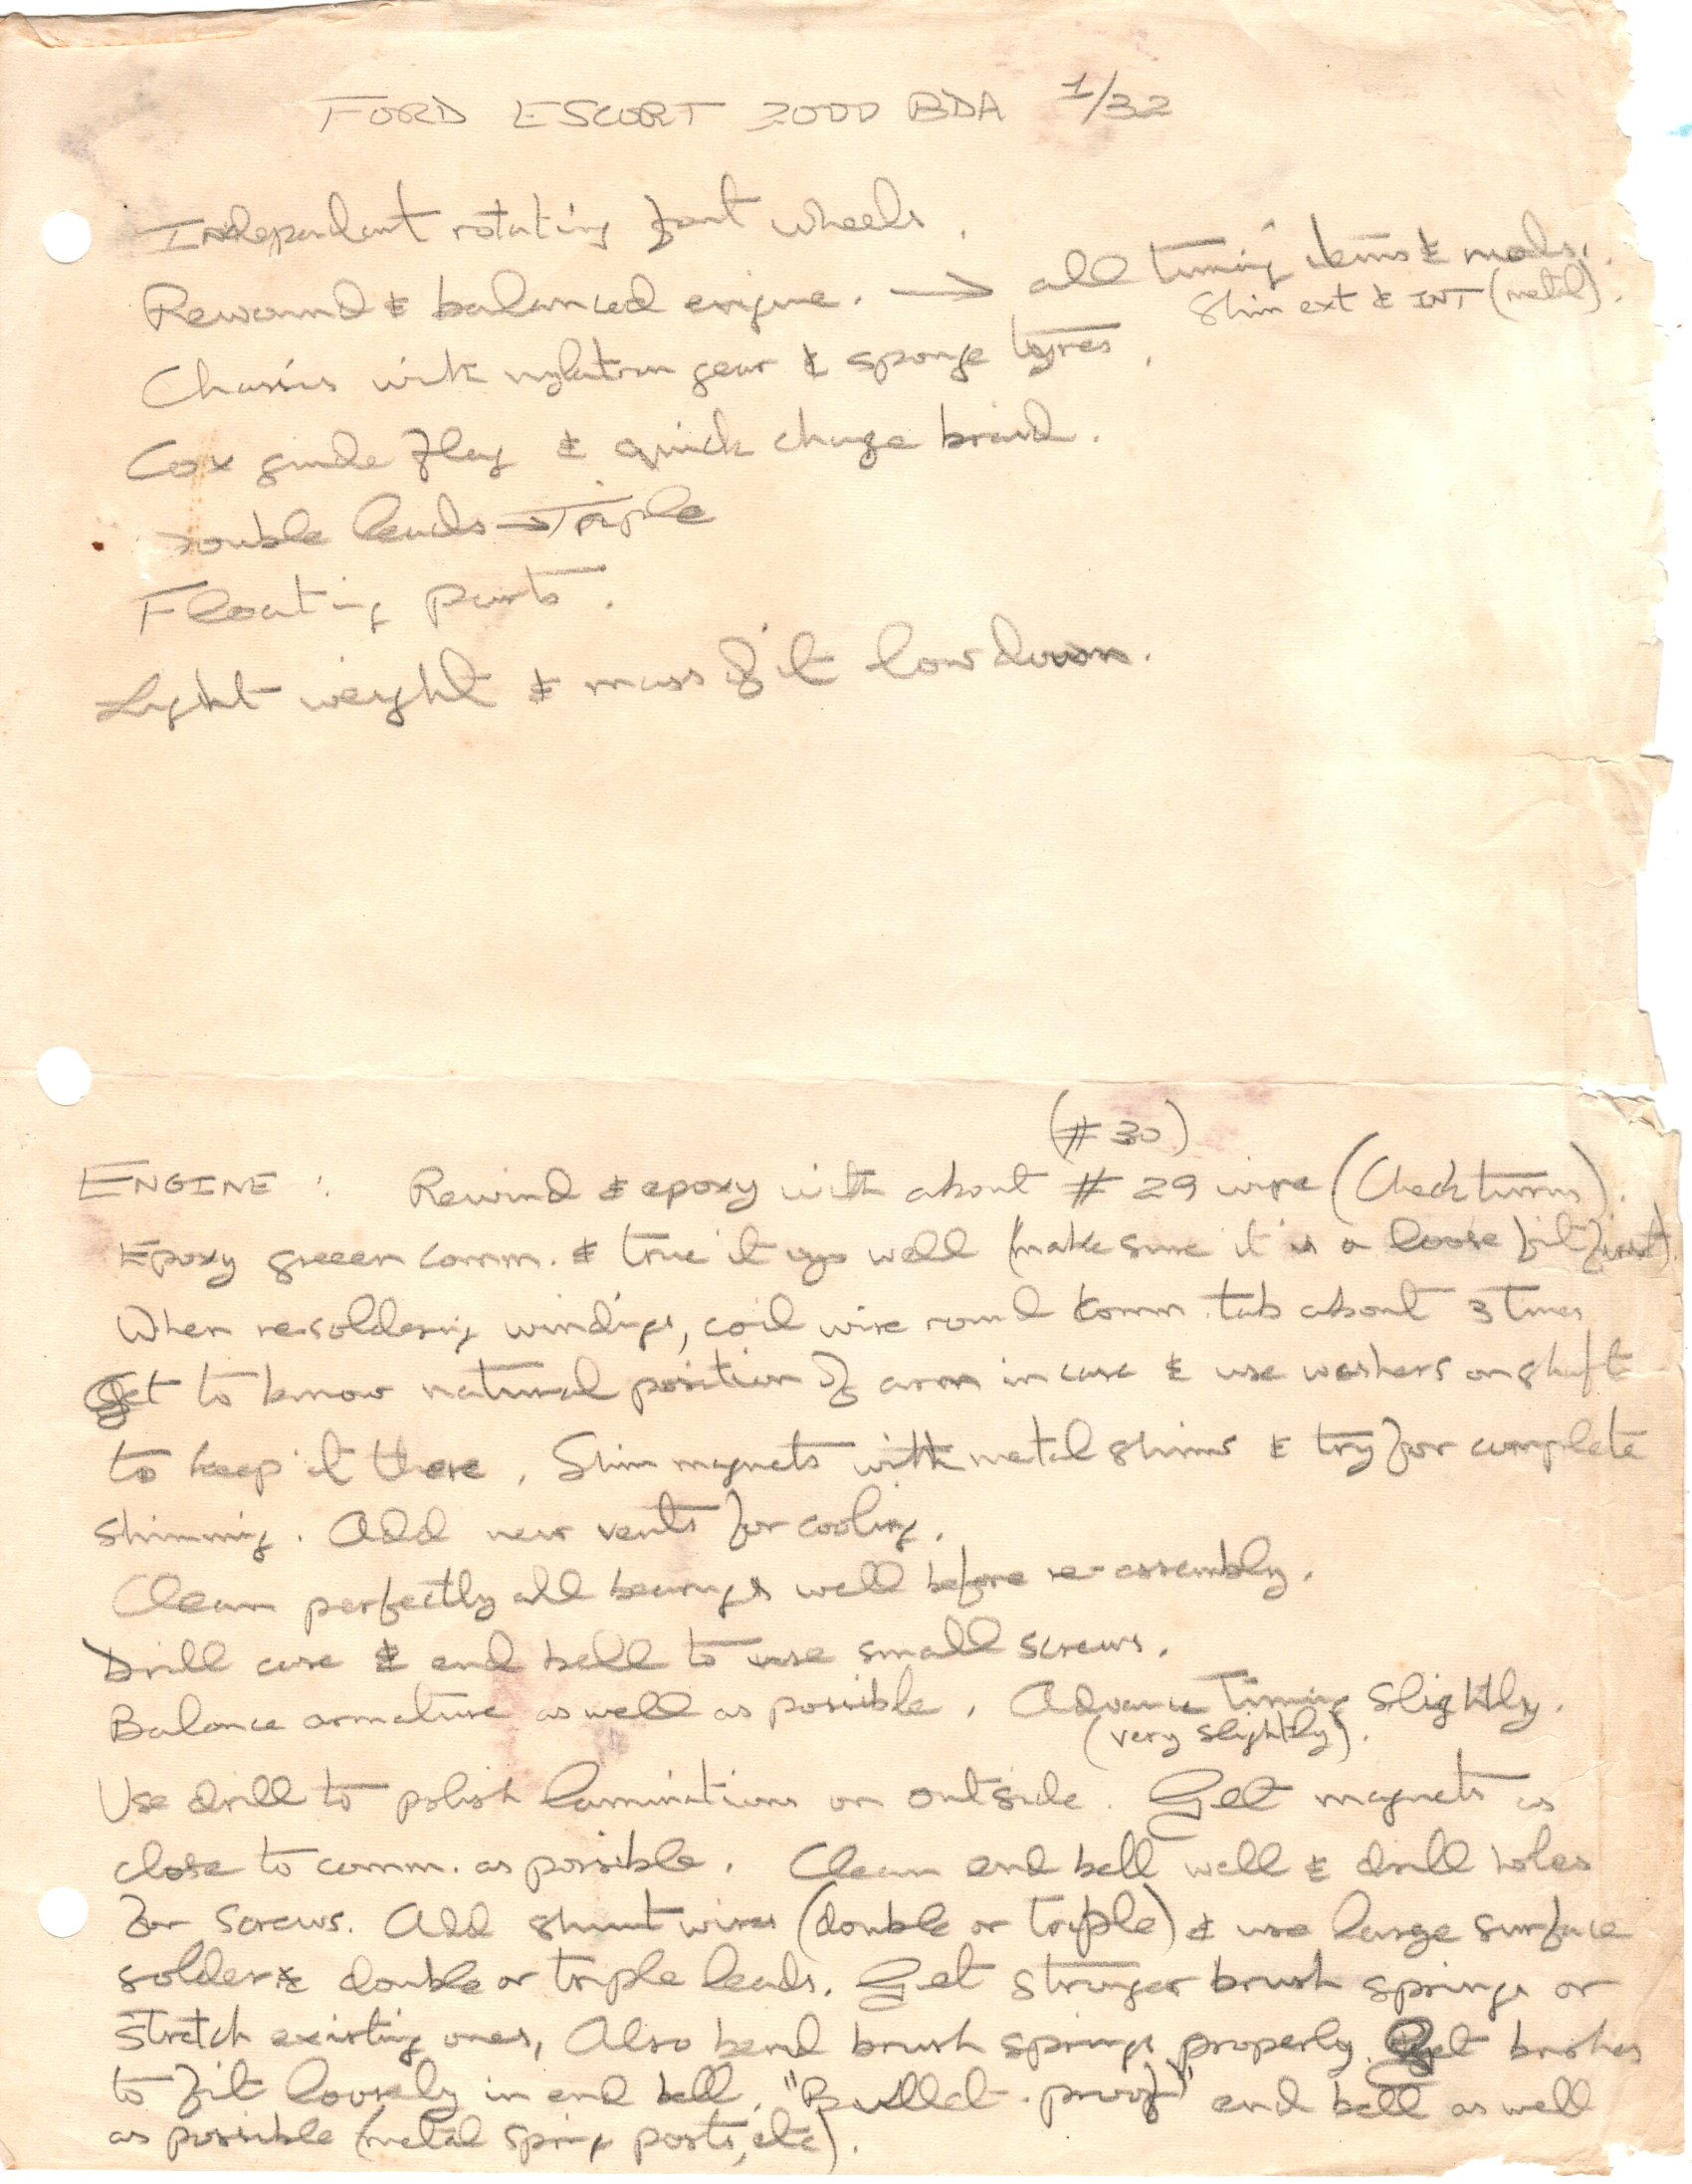 FORD ESCORT 2000 BDA 1/32
Independant rotating front wheels.
Rewound & balanced engine. → all tuning items & mods.
Shim ext & INT (metal).
Chassis with nylatron gear & sponge tyres.
Cox guide flag & quick change braid.
Double leads → Triple
Floating parts.
Light weight & mass of it low down.
(#30)
ENGINE : Rewind & epoxy with about #29 wire (Check turns).
Epoxy greeen comm. & true it up well (make sure it is a loose fit first).
When re-soldering windings, coil wire round comm tab about 3 times
Get to know natural position of arm in case & use washers on shaft
to keep it there. Shim magnets with metal shims & try for complete
shimming. Add new vents for cooling.
Clean perfectly all bearings well before re-assembly.
Drill case & end bell to use small screws.
Balance armature as well as possible. Advance Timing Slightly.
(very slightly).
Use drill to polish laminations on outside. Get magnets as
close to comm. as possible. Clean end bell well & drill holes
for screws. Add shunt wires (double or triple) & use large surface
solder & double or triple leads. Get stronger brush springs or
stretch existing ones, Also bend brush springs properly. Get brushes
to fit loosely in end bell. "Bullet-proof" end bell as well
as possible (metal spring posts, etc).